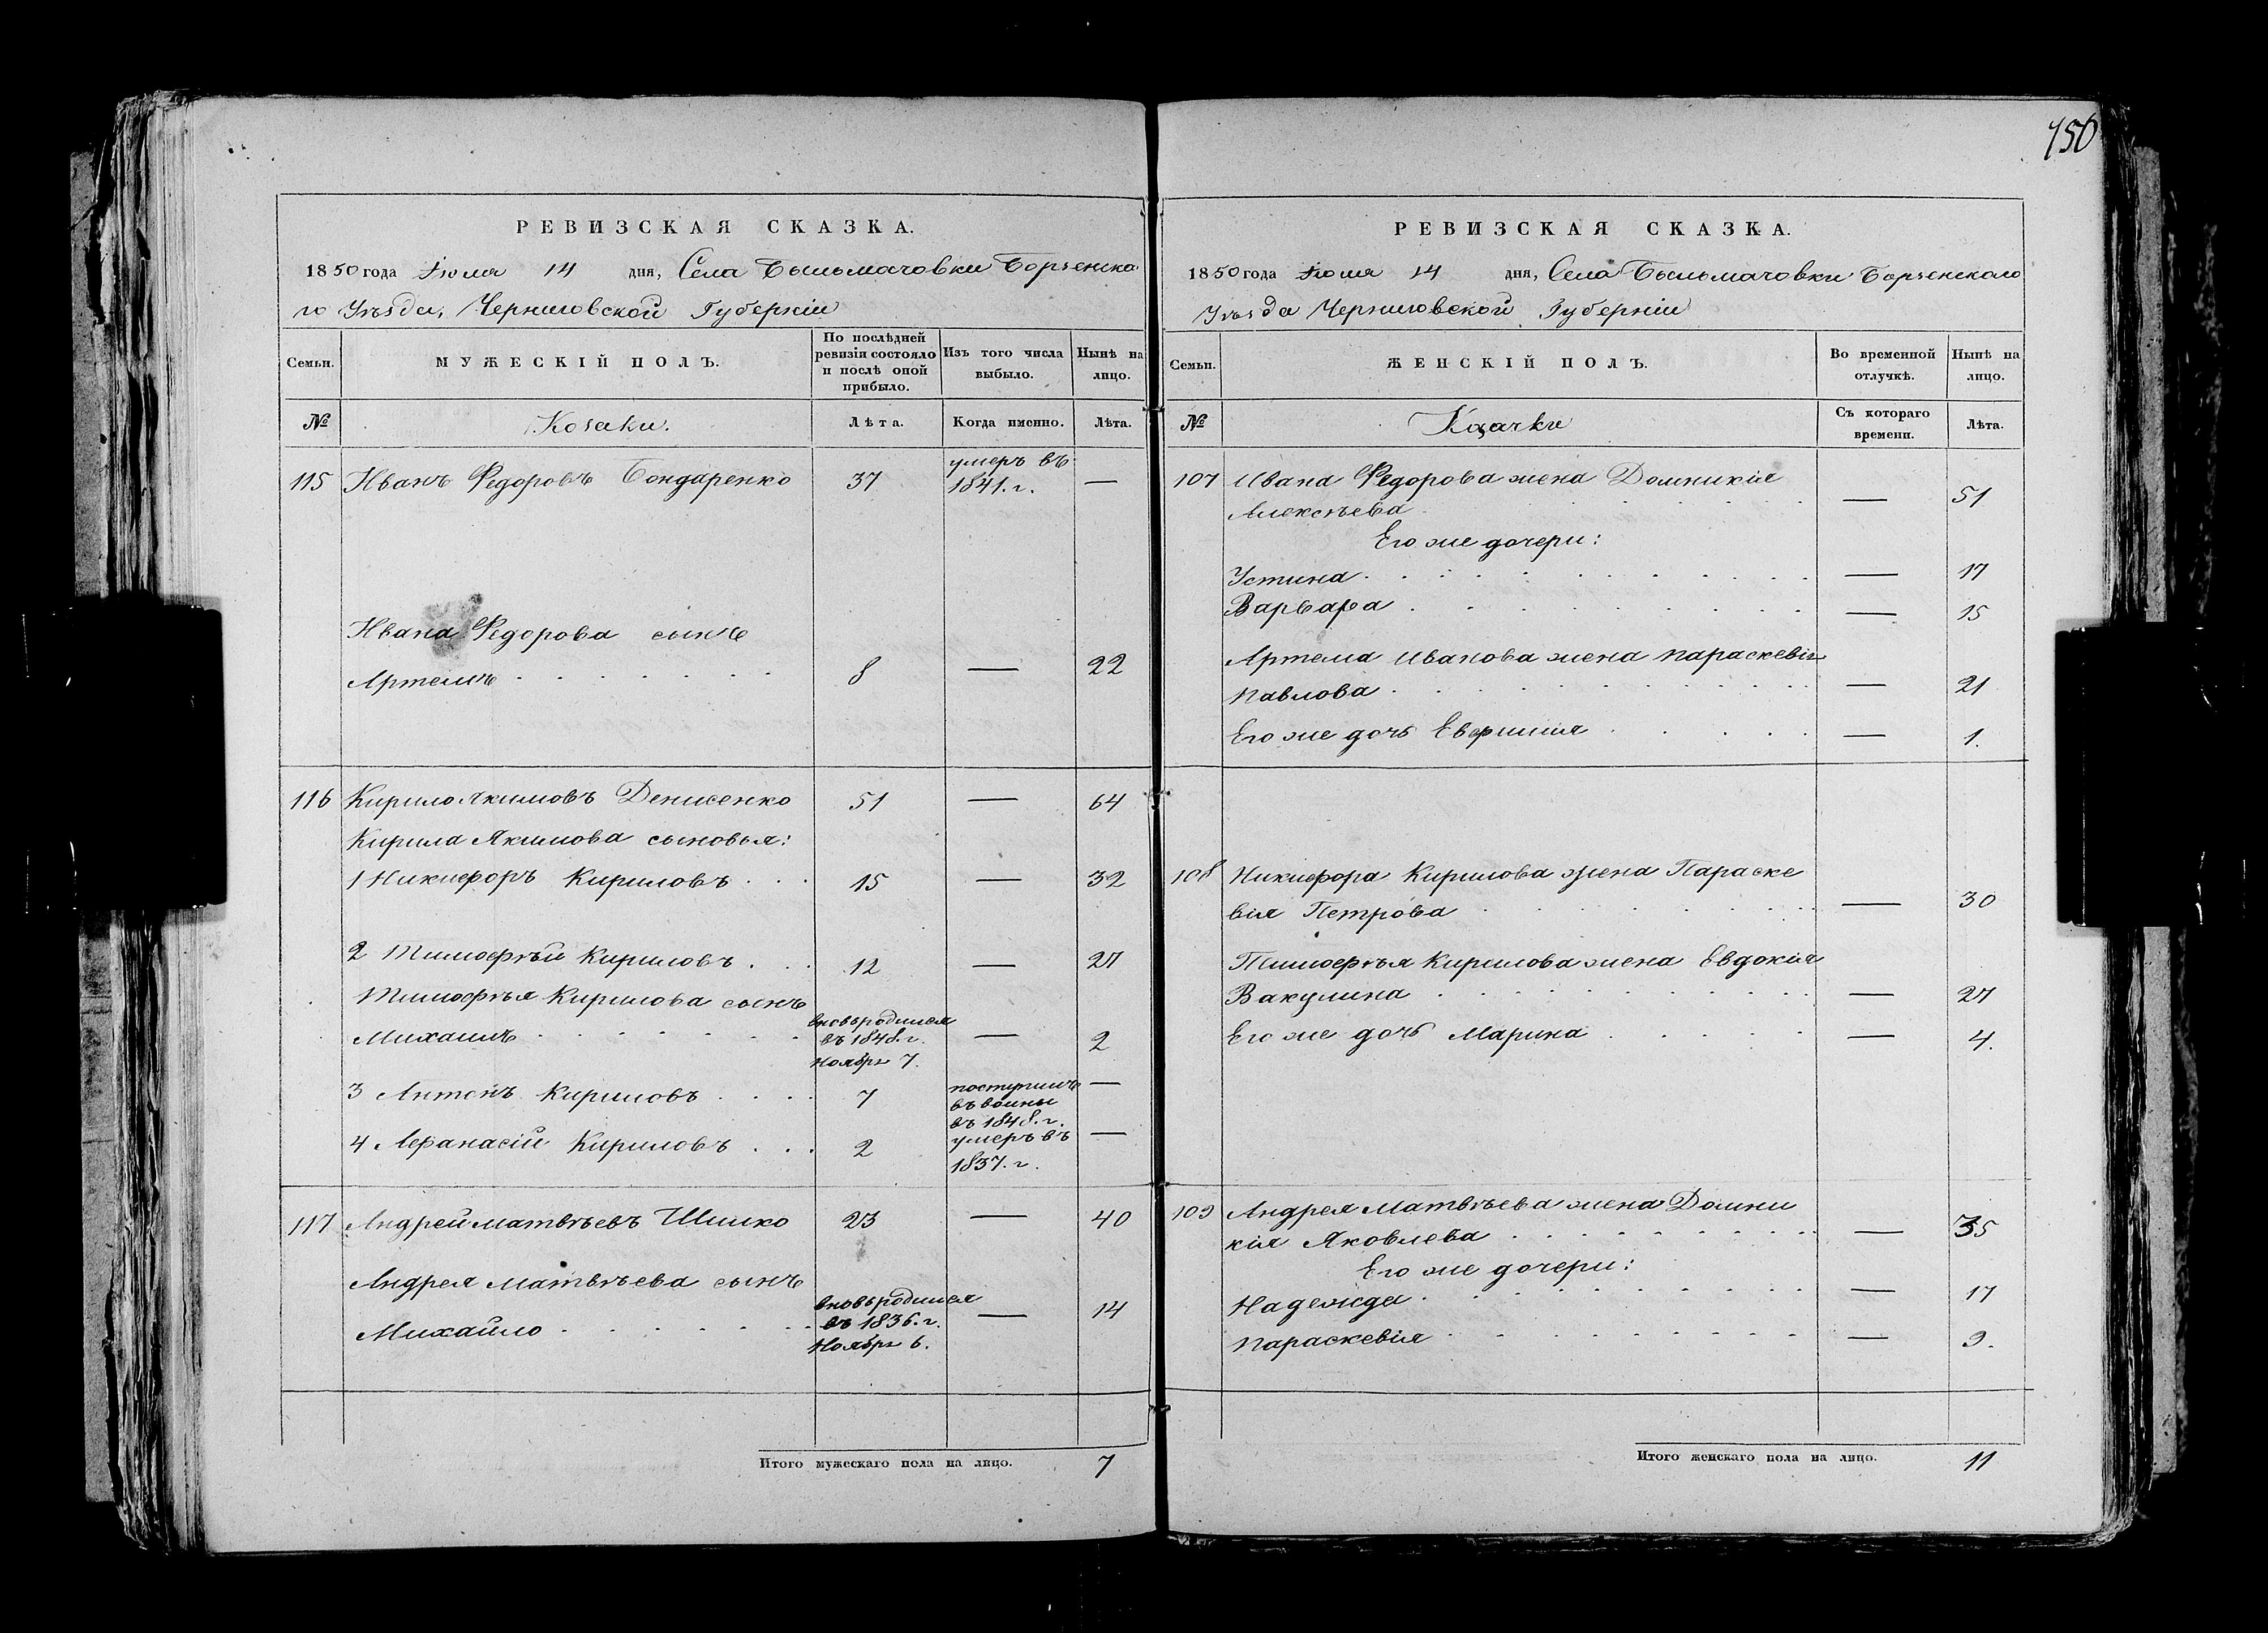 150
РЕВИЗСКАЯ СКАЗКА.
1850 года Іюля 14 дня, Села Бысьмачовки Борзенско
го Уѣзда, Черниговской Губерніи
Семьи. МУЖЕСКІЙ ПОЛЪ. По послѣдней ревизіи состояло и послѣ оной прибыло. Изъ того числа выбыло. Нынѣ на лицо.
№ Козаки. Лѣта. Когда именно. Лѣта.
115 Иванъ Федоровъ Бондаренко 37 умеръ въ 1841. г. —
Ивана Федорова сынъ
Артемъ 8 — 22
116 Кирило Якимовъ Денисенко 51 — 64
Кирила Якимова сыновья:
1 Никифоръ Кириловъ 15 — 32
2 Тимофѣй Кириловъ 12 — 27
Тимофѣя Кирилова сынъ
Михаилъ вновь родился въ 1848. г. Ноября 7. — 2
3 Антонъ Кириловъ 7 поступилъ въ воины въ 1848. г. —
4 Афанасій Кириловъ 2 умеръ въ 1837. г. —
117 Андрей Матвѣевъ Шишко 23 — 40
Андрея Матвѣева сынъ
Михайло вновь родился въ 1836. г. Ноября 6. — 14
Итого мужескаго пола на лицо. 7
РЕВИЗСКАЯ СКАЗКА.
1850 года Іюля 14 дня, Села Бысьмачовки Борзенскаго
Уѣзда Черниговской Губерніи
Семьи. ЖЕНСКІЙ ПОЛЪ. Во временной отлучкѣ. Нынѣ на лицо.
№ Казачки Съ котораго времени. Лѣта.
107 Ивана Федорова жена Домникія
Алексѣева — 51
Его же дочери:
Устина — 17
Варвара — 15
Артема Иванова жена Параскевія
Павлова — 21
Его же дочь Евфимія — 1.
108 Никифора Кирилова жена Параске
вія Петрова — 30
Тимофѣя Кирилова жена Евдокія
Вакулина — 27
Его же дочь Марина — 4.
109 Андрея Матвѣева жена Домни
кія Яковлева — 35
Его же дочери:
Надежда — 17
Параскевія — 9.
Итого женскаго пола на лицо. 11